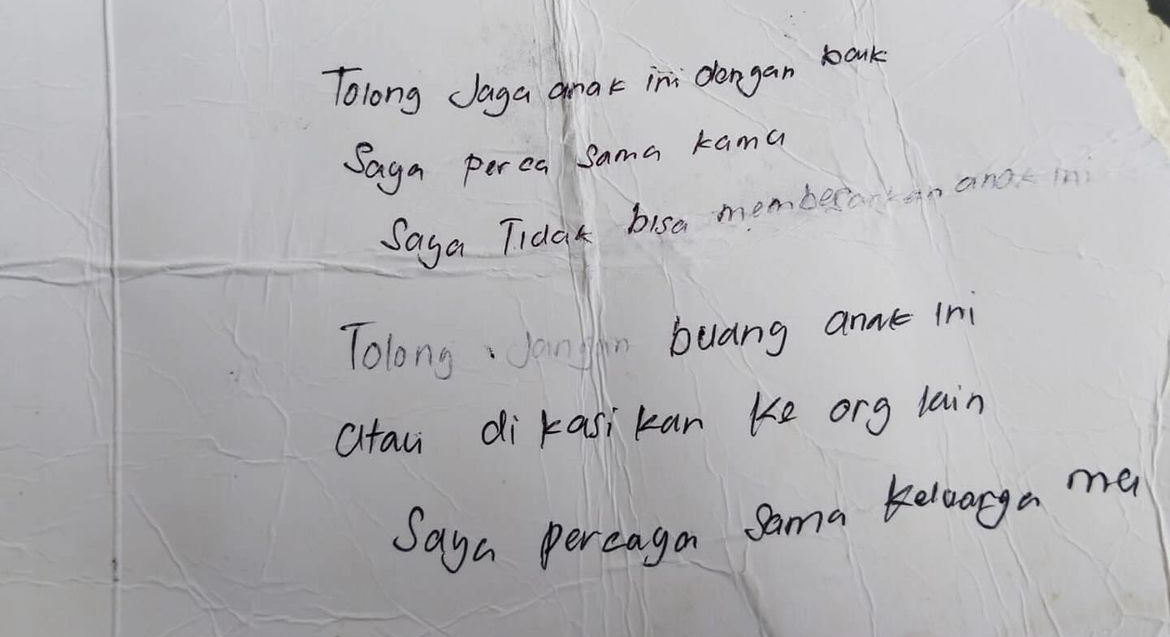 Tolong Jaga anak ini dengan baik
Saya perca sama kamu
Saya Tidak bisa membesarkan anak ini
Tolong Jangan buang anak ini
atau di kasi kan ke org lain
Saya percaya sama keluarga mu